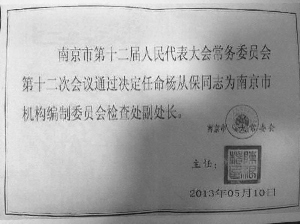 南京市第十二届人民代表大会常务委员会
第十二次会议通过决定任命杨从保同志为南京市
机构编制委员会检查处副处长。
南京市
委员会
主任:
2013年05月10日